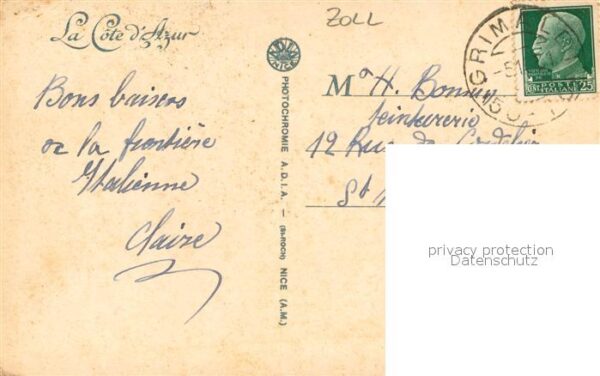 La Côte d'Azur
Bons baisers
de la frontière
Italienne
Claire
ADIA
NICE
PHOTOCHROMIE A.D.I.A. — (St-ROCH) NICE (A.M.)
ZOLL
GRIMA
POSTE
ITALIANE
25
H.
teinturerie
12 Rue
St
privacy protection
Datenschutz